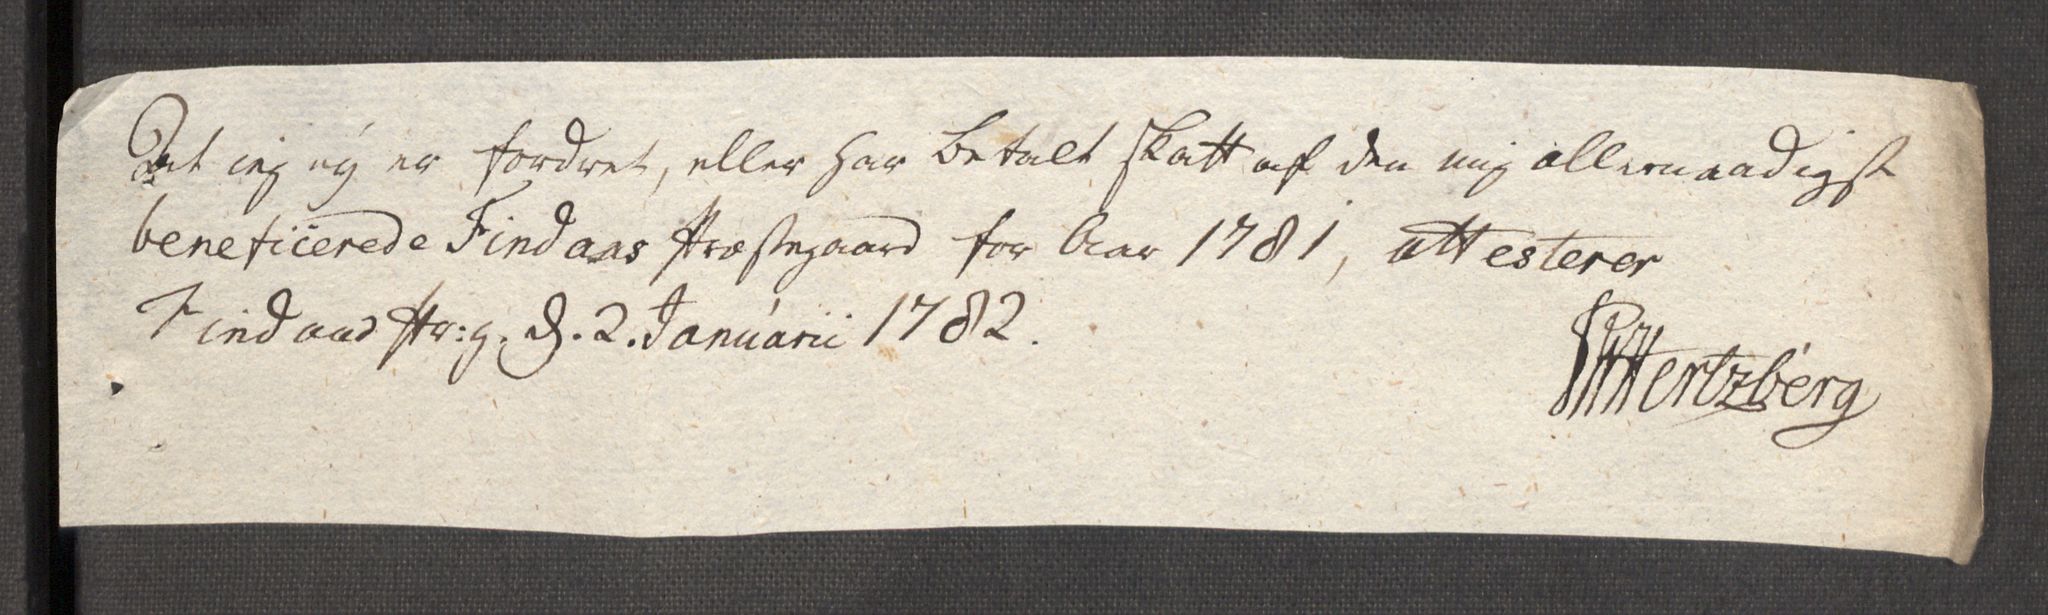 At jeg ey er fordret, eller har betalt skatt af den mig allernaadigst
beneficerede Findaas Præstegaard for Aar 1781, attesterer
Findaas Pr: g. d. 2. Januarii 1782.
Hertzberg